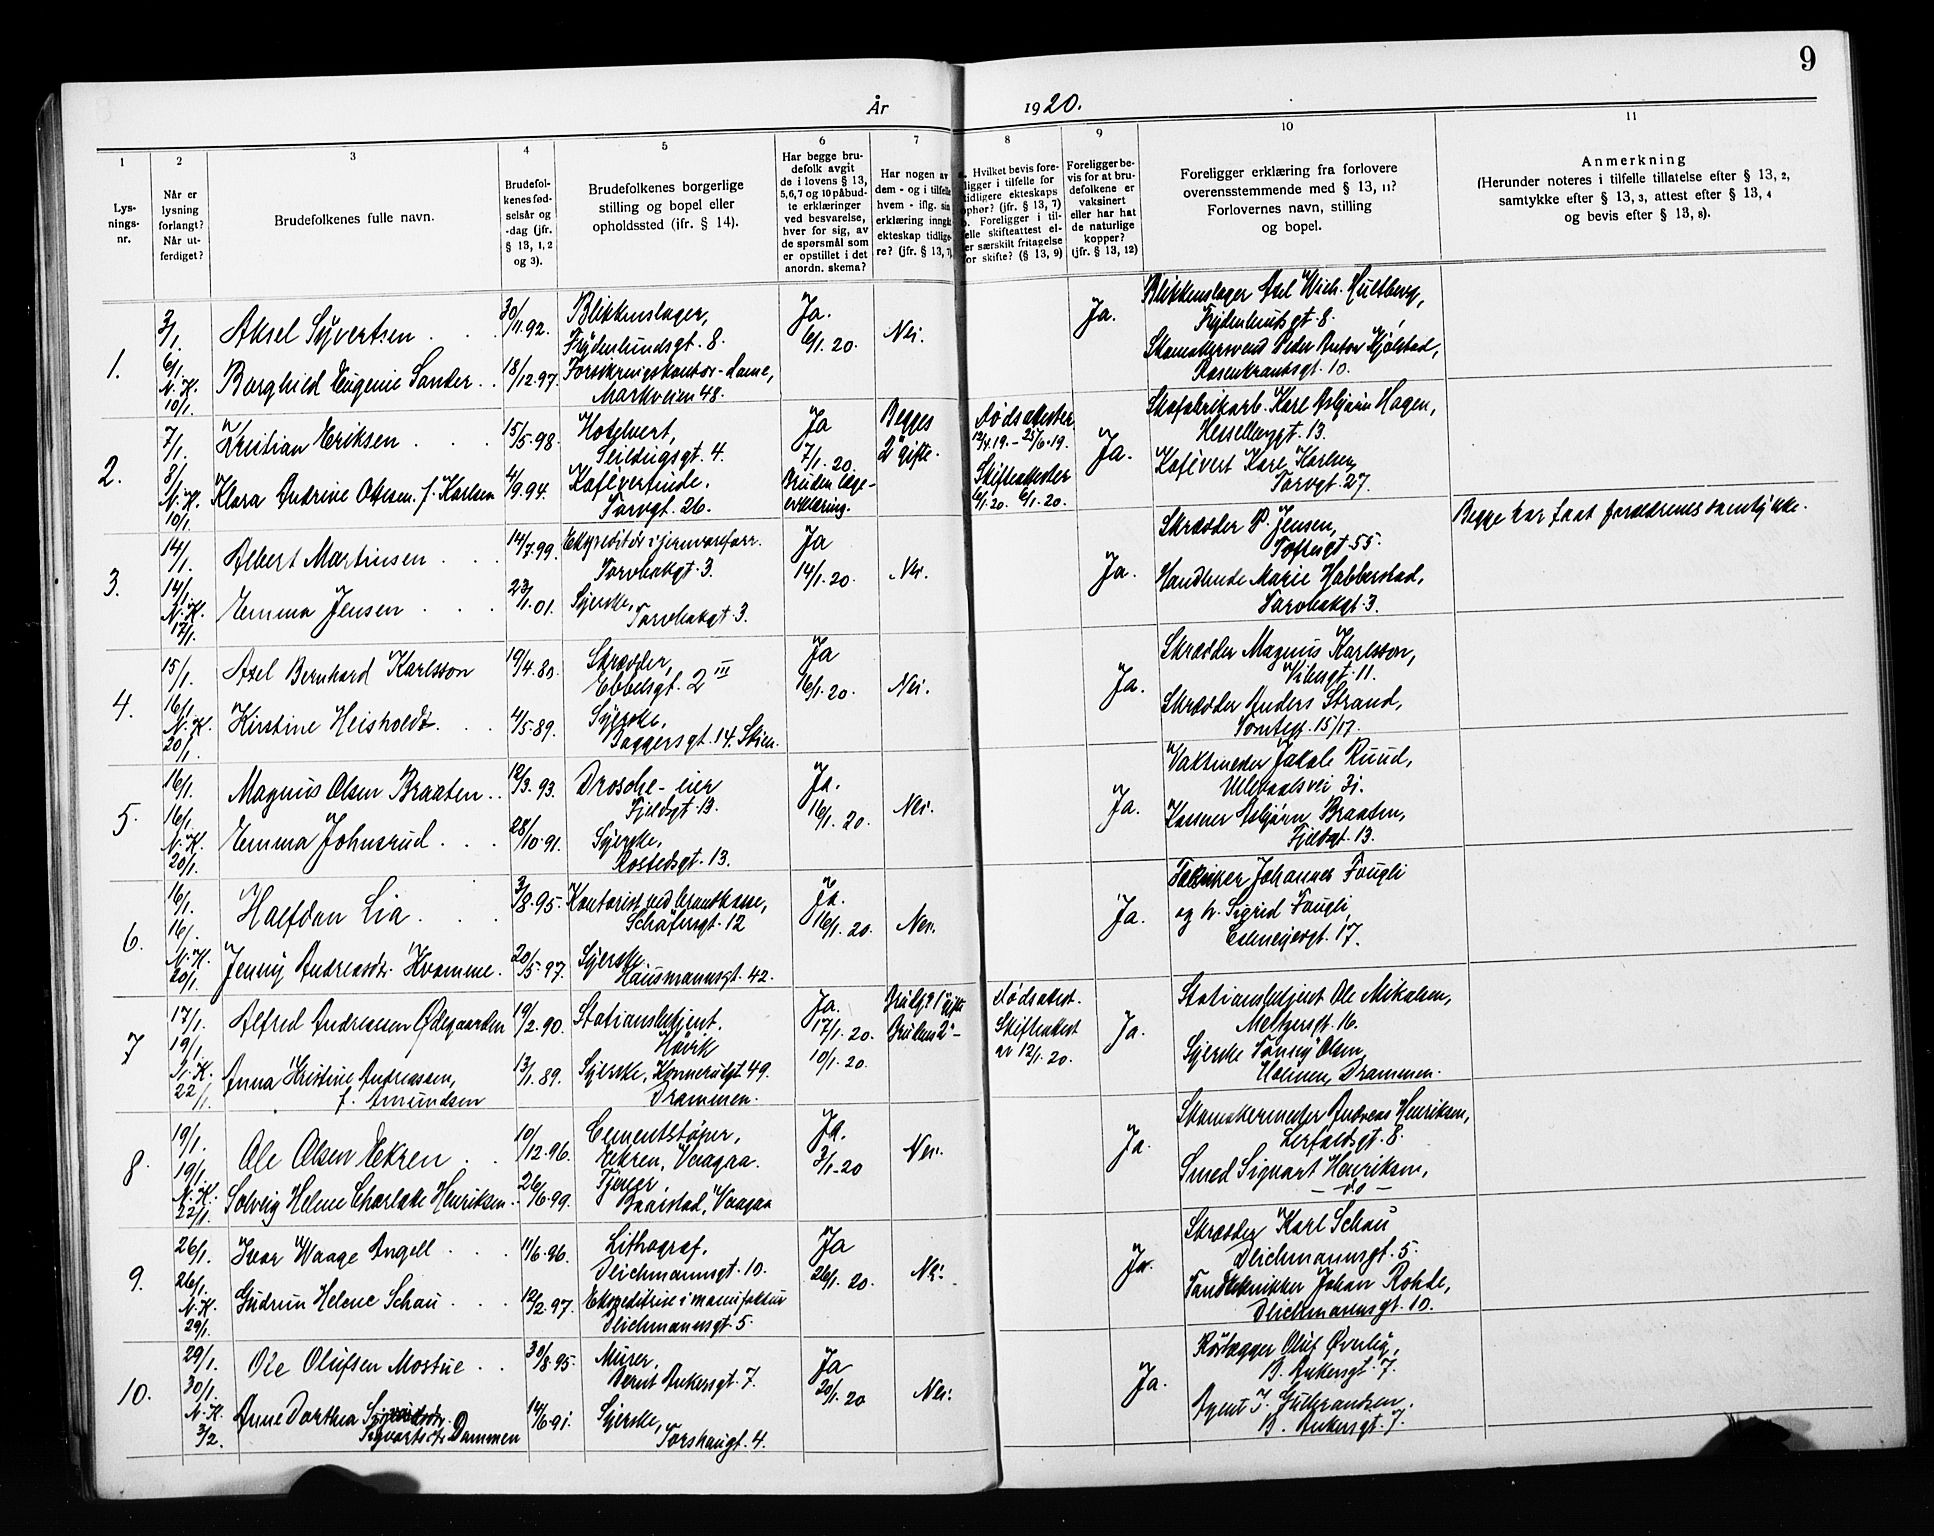 9
År 1920.
1
2
3
4
5
6
7
8
9
10
11
Lys-
nings-
nr.
Når er
lysning
forlangt?
Når ut-
ferdiget?
Brudefolkenes fulle navn.
Brudefol-
kenes fød-
selsår og
-dag (jfr.
§ 13, 1, 2
og 3).
Brudefolkenes borgerlige
stilling og bopel eller
opholdssted (jfr. § 14).
Har begge bru-
defolk avgit
de i lovens § 13,
5,6,7 og 10 påbud-
te erklæringer
ved besvarelse,
hver for sig, av
de spørsmål som
er opstillet i det
anordn. skema?
Har nogen av
dem - og i tilfelle
hvem - iflg. sin
erklæring inngåt
ekteskap tidlige-
re? (jfr. § 13, 7)
a. Hvilket bevis fore-
ligger i tilfelle for
tidligere ekteskaps
ophør? (jfr. § 13, 7)
b. Foreligger i til-
felle skifteattest el-
ler særskilt fritagelse
for skifte? (§ 13, 9)
Foreligger be-
vis for at bru-
defolkene er
vaksinert
eller har hat
de naturlige
kopper?
(jfr. § 13, 12)
Foreligger erklæring fra forlovere
overensstemmende med § 13, 11?
Forlovernes navn, stilling
og bopel.
Anmerkning
(Herunder noteres i tilfelle tillatelse efter § 13, 2,
samtykke efter § 13, 3, attest efter § 13, 4
og bevis efter § 13, 8).
1.
3/1.
6/1.
N.K.
10/1.
Aksel Syvertsen
Borghild Eugenie Sander
30/11.92.
18/12.97.
Blikkenslager,
Frydenlundsgt. 8.
Forsikringskontor-dame,
Markveien 48.
Ja.
6/1.20.
Nei.
Ja.
Blikkenslager Axel Wilh. Hultberg,
Frydenlundsgt. 8.
Skomakersvend Peder Anton Kjølstad,
Rosenkrantzgt. 10.
2.
7/1.
8/1.
N.K.
10/1.
Kristian Eriksen
Klara Andrine Olsen f. Karlsen
15/5.98.
4/9.94.
Hotelvert,
Seildugsgt. 4.
Kafévertinde,
Torvgt. 26.
Ja
7/1.20.
Bruden læge-
erklæring.
Begges
2' gifte.
Dødsattester
12/4.19. – 25/6.19.
Skifteattester
6/1.20. 6/1.20.
Ja.
Skofabrikarb. Karl Asbjørn Hagen,
Hesselbergt. 13.
Kafévert Karl Karlsen,
Torvgt. 27.
3.
14/1.
14/1.
N.K.
17/1.
Albert Martinsen
Emma Jensen
14/7.99.
23/1.01.
Ekspeditør i jernvareforr.
Torvbakgt. 3.
Syerske,
Torvbakgt. 3.
Ja
14/1.20.
Nei.
Ja.
Skrædder P. Jensen,
Toftesgt. 55.
Handlende Marie Habberstad,
Torvbakgt. 3.
Begge har faat forældrenes samtykke.
4.
15/1.
16/1.
N.K.
20/1.
Axel Bernhard Karlsson
Kirstine Heisholdt
19/4.80.
4/5.89.
Skrædder,
Ebbelsgt. 2 III
Syerske,
Baggersgt. 14. Skien.
Ja
16/1.20.
Nei.
Ja.
Skrædder Magnus Karlsson,
Vibesgt. 11.
Skrædder Anders Strand,
15/17.
5.
16/1.
16/1.
N.K.
20/1.
Magnus Olsen Braaten
Emma Johnsrud
12/3.93.
28/10.91.
Drosche-eier
Fjeldgt. 13.
Syerske,
Rostedsgt. 13.
Ja.
16/1.20.
Nei.
Ja.
Vaktmester Jakob Ruud,
Ullevaalsvei 31.
Asbjørn Braaten,
Fjeldgt. 13.
6.
16/1.
16/1.
N.K.
20/1.
Halfdan Lia
Jenny Andreasdt. Kvamme
3/8.95.
20/5.97.
Kontorist ved brandkasse,
Schäfersgt. 12
Syerske,
Hausmannsgt. 42.
Ja.
16/1.20.
Nei.
Ja.
Johannes Fougli
og h. Sigrid Fougli,
17.
7
17/1.
19/1.
N.K.
22/1.
Alfred Andreassen Ødegaarden
Anna Kristine Andreassen,
f. Amundsen
19/2.90.
13/1.89.
Stationsbetjent.
Høvik
Syerske, Konnerudgt. 49.
Drammen.
Ja.
17/1.20.
10/1.20.
Brudg? 1' gifte
Bruden 2' –
Dødsattest.
Skifteattest
av 12/1.20.
Ja.
Stationsbetjent Ole Mikalsen,
Meltzersgt. 16.
Syerske Fanny Olsen,
Holmen, Drammen.
8.
19/1.
19/1.
N.K.
22/1.
Ole Olsen Ekren
Solveig Helene Charlotte Henriksen
10/12.96.
26/6.99.
Cementstøper,
Ekren, Vaagaa.
Tjener,
Baarstad, Vaagaa
Ja.
3/1.20
Nei.
Ja.
Skomakermester Andreas Henriksen,
Lerfaldsgt. 8.
Smed Sigvart Henriksen,
– do –
9.
26/1.
26/1.
N.K.
29/1.
Ivar Waage Angell
Gudrun Helene Schau
11/6.96.
12/2.97.
Lithograf,
Deichmannsgt. 10.
Ekspeditrise i manufaktur
Deichmannsgt. 5.
Ja
26/1.20.
Nei.
Ja.
Skrædder Karl Schau
Deichmannsgt. 5.
Tandtekniker Johan Rohde,
Deichmannsgt. 10.
10.
29/1.
30/1.
N.K.
3/2.
Ole Olufsen Mostue
Anne Dorthea
Sigvartsdt. Dammen
30/8.95.
14/6.91.
Murer,
Bernt Ankersgt. 7.
Syerske,
Torshaugt. 4.
Ja
20/1.20
Nei.
Ja.
Rørlægger Oluf Øverby,
B. Ankersgt. 7.
Agent I. Gulbrandsen.
B. Ankersgt. 7.